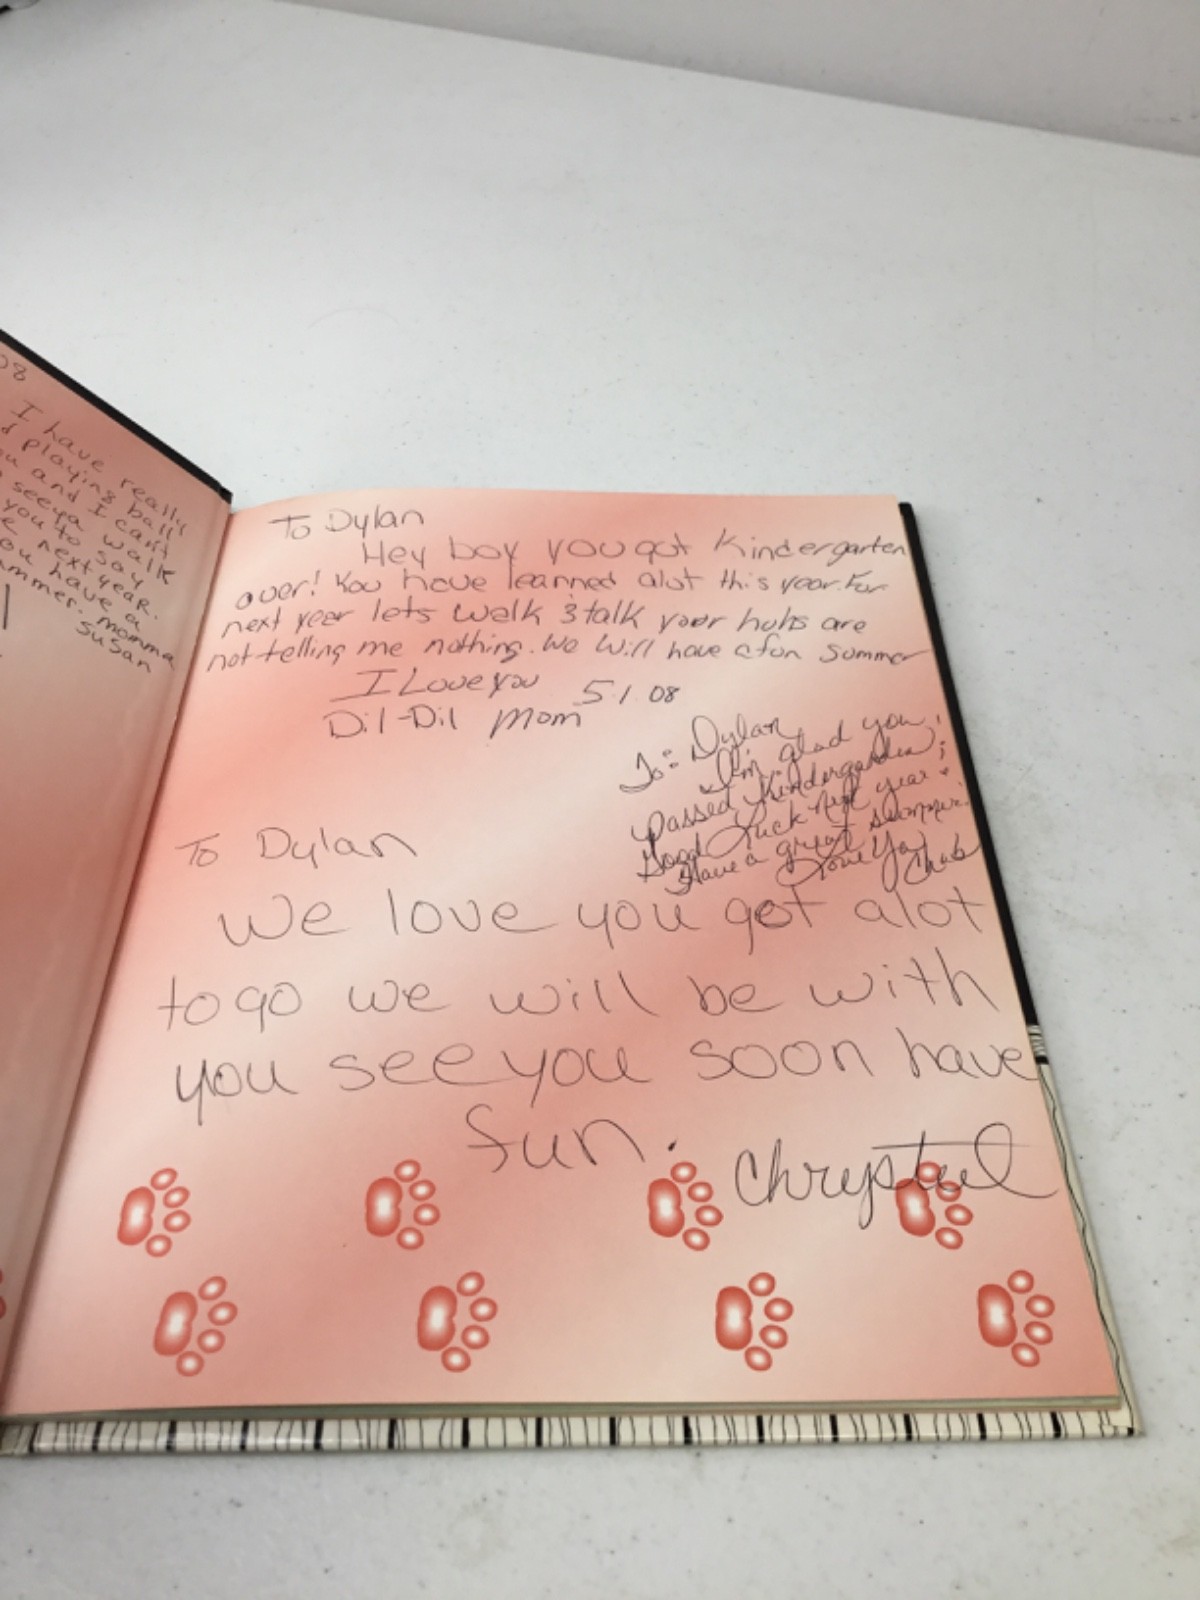 08
I have really
playing ball
and I can't
seeya walk
you to say
next year.
you have a
summer. momma
susan
To Dylan
Hey boy you got Kindergarten
over! You have learned alot this year. For
next year lets walk & talk your huhs are
not telling me nothing. We will have a fun summer
I Love you
Dil-Dil Mom 5.1.08
To: Dylan
I'm glad you
passed Kindergarden;
Good Luck next year.
Have a great summer.
Love Ya
To Dylan
We love you got alot
to go we will be with
you see you soon have
fun.
Chrysteel